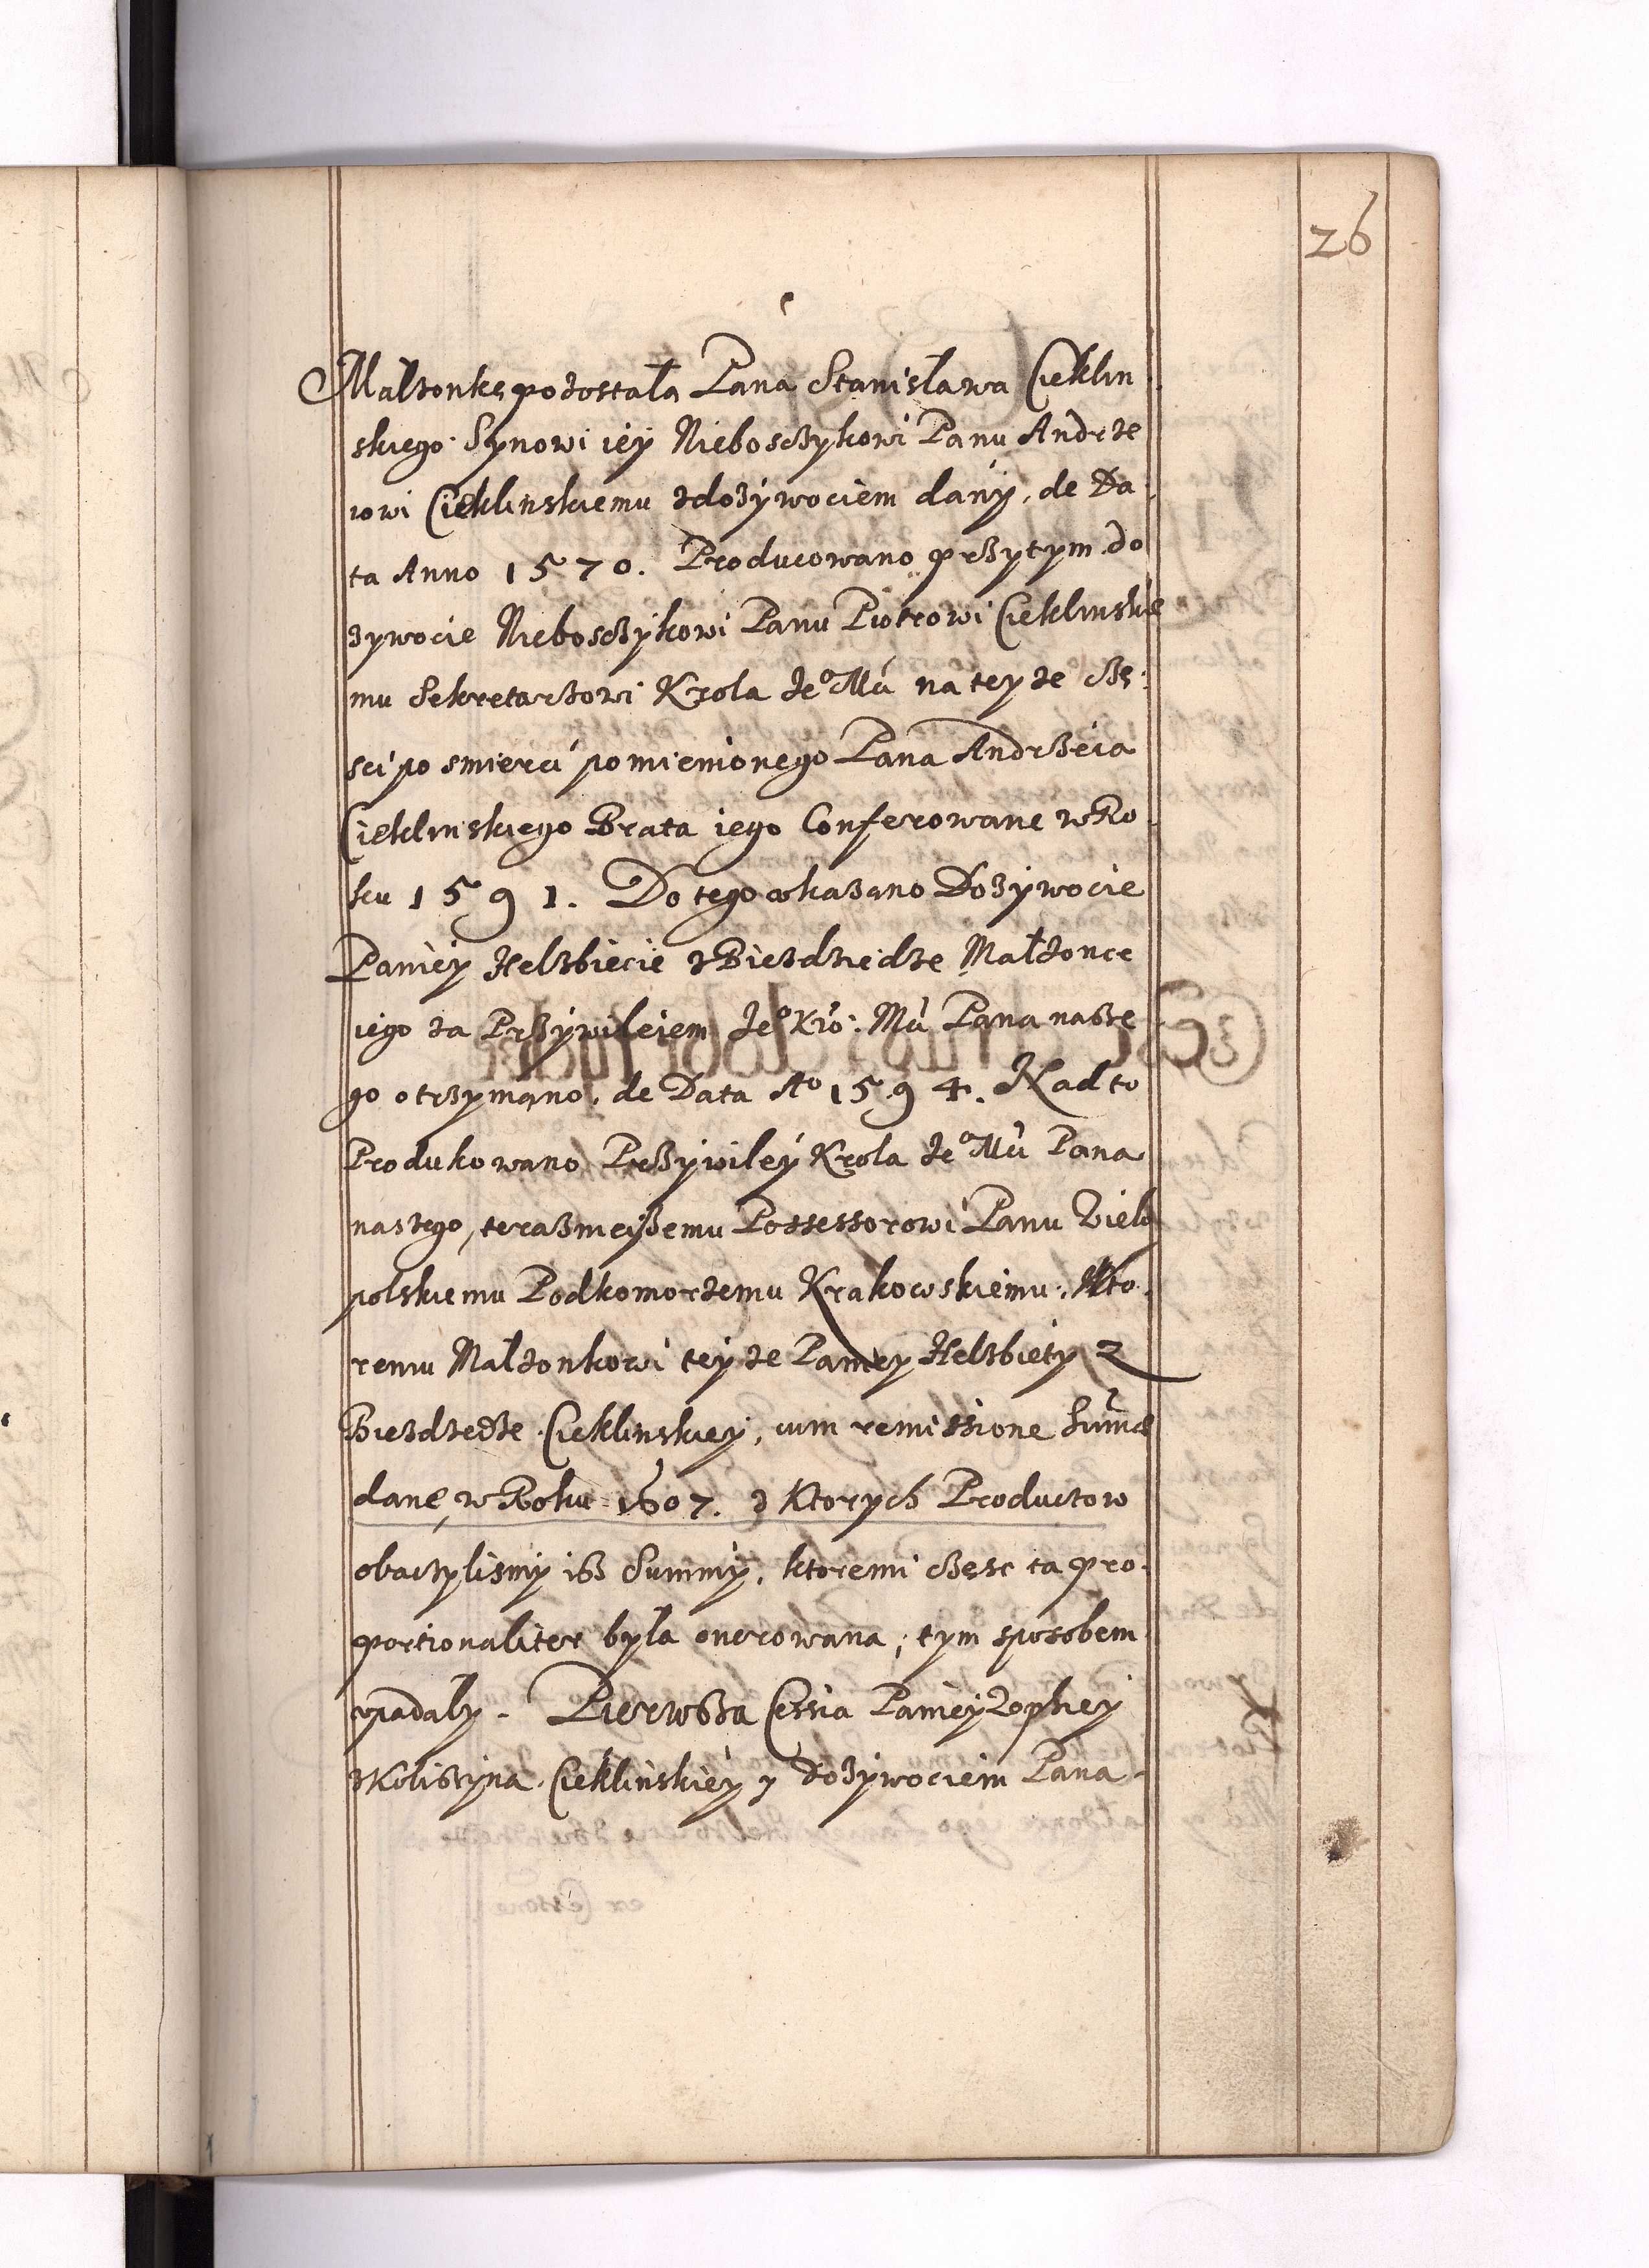 26
Małżonkę pozostałą Pana Stanisława Cieklin
skiego. Synowi iey Nieboszczykowi Panu Andrze
iowi Cieklinskiemu z dożywociem dany, de Da
ta Anno 1570. Producowano przytym do
zywocie Nieboszczykowi Panu Piotrowi Cieklinskie
mu Sekretarzowi Krola Jeo Mci na teyze czę:
sci po smierci pomienionego Pana Andrzeia
Cieklinskiego Brata iego Conferowane w Ro
ku 1591. Do tego okazano Dożywocie
Paniey Helzbiecie z Biezdziedze Małzonce
iego za Przywileiem Jeo Kro: Mci Pana nasze
go otrzymano, de Data Ao 1594. Nadto
Produkowano Przywiley Krola Jeo Mci Pana
naszego, teraznieiszemu Possessorowi Panu Wielo
polskiemu Podkomorzemu Krakowskiemu. Kto
remu Małzonkowi teyze Paniey Helzbiety z
Biezdziedze Cieklinskiey, cum remissione Sumae
dane, w Roku 1607. z Ktorych Productow
obaczylismy isz Summy, ktoremi częsc ta pro
portionaliter była onerowana, tym sposobem
wpadały. Pierwsza Cessia Paniey Zophiey
z Koliszyna Cieklinskiey y dożywociem Pana